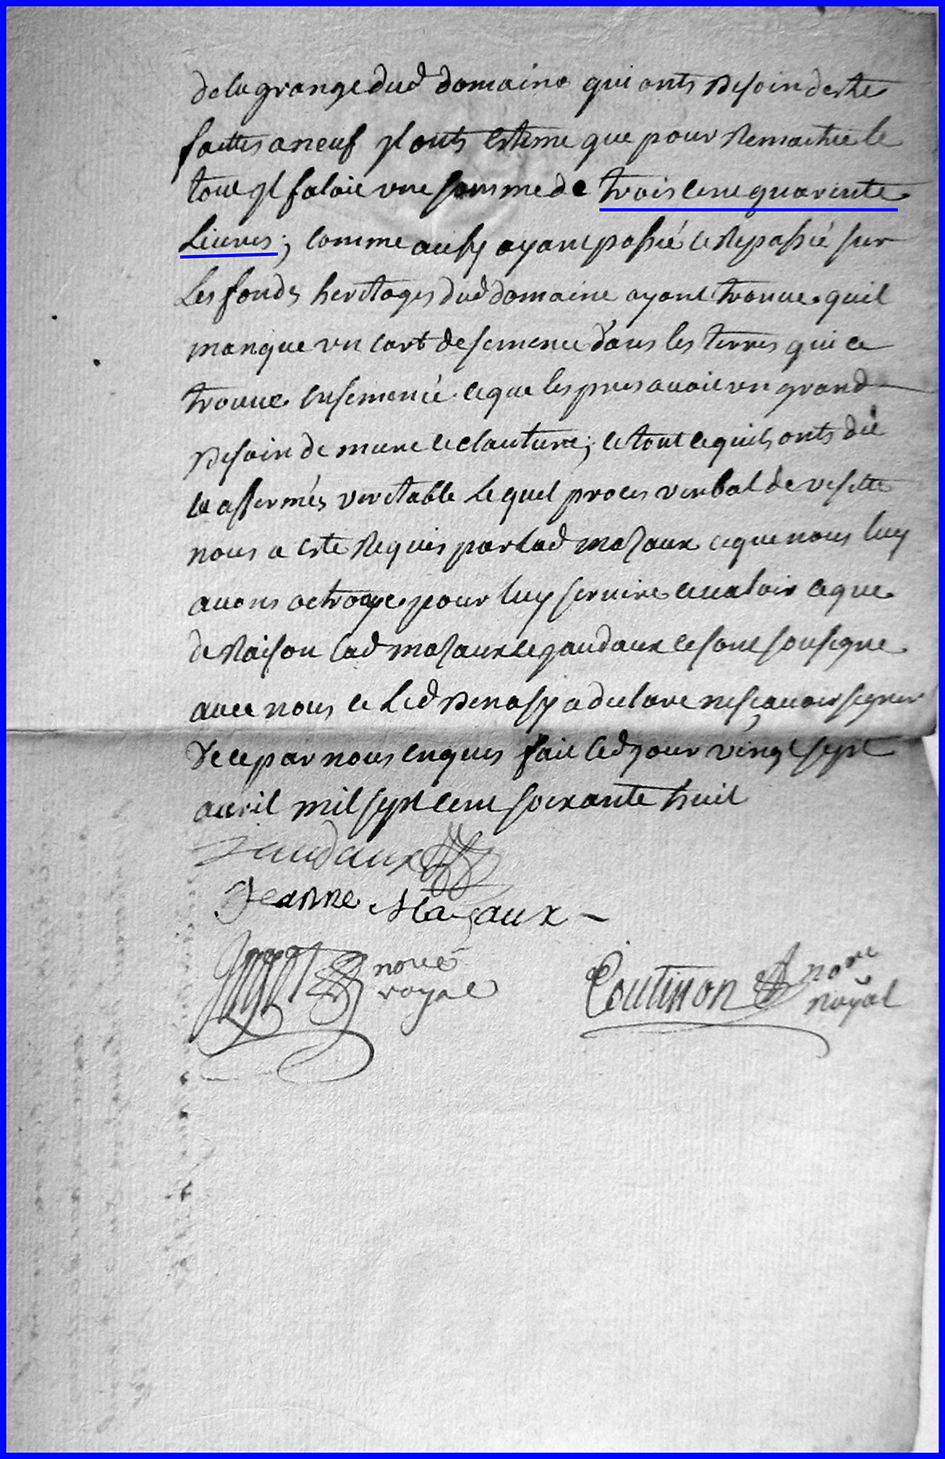 de la grange dud domaine qui onts Besoin destre
faittes a neuf yl onts estime que pour Remaitre le
tout yl faloit une somme de trois cent quarente
Livres; comme aussy ayant passé et Repassé sur
Les fonds heritages dud domaine ayant trouve quil
manque un cart de semence dans les terres qui ce
trouve ensemencé et que les pres avoit un grand
Besoin de mure et clauture; et tout ce quils onts dit
et affermés veritable Le quel proces verbal de visitte
nous a este Requis par Lad mazaux et que nous luy
avons octroye pour luy servire et valoir ce que
de Raison Lad mazaux et jaudaux ce sont sousigne
avec nous et Led Benasy a declare ne sçavoir signer
de ce par nous enquis fait led jour vingt sept
avril mil sept cent soixante huit
Jaudaux
Jeanne Mazaux
note royal
Coutisson nore Royal